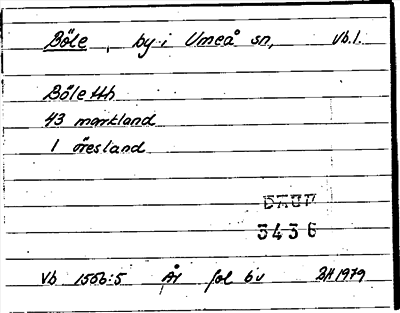 Böle, by i Umeå sn, Vb.l.
Böle Hh
43 markland
1 öresland
DAUM
3436
Vb 1566:5 År fol 6v BH 1979